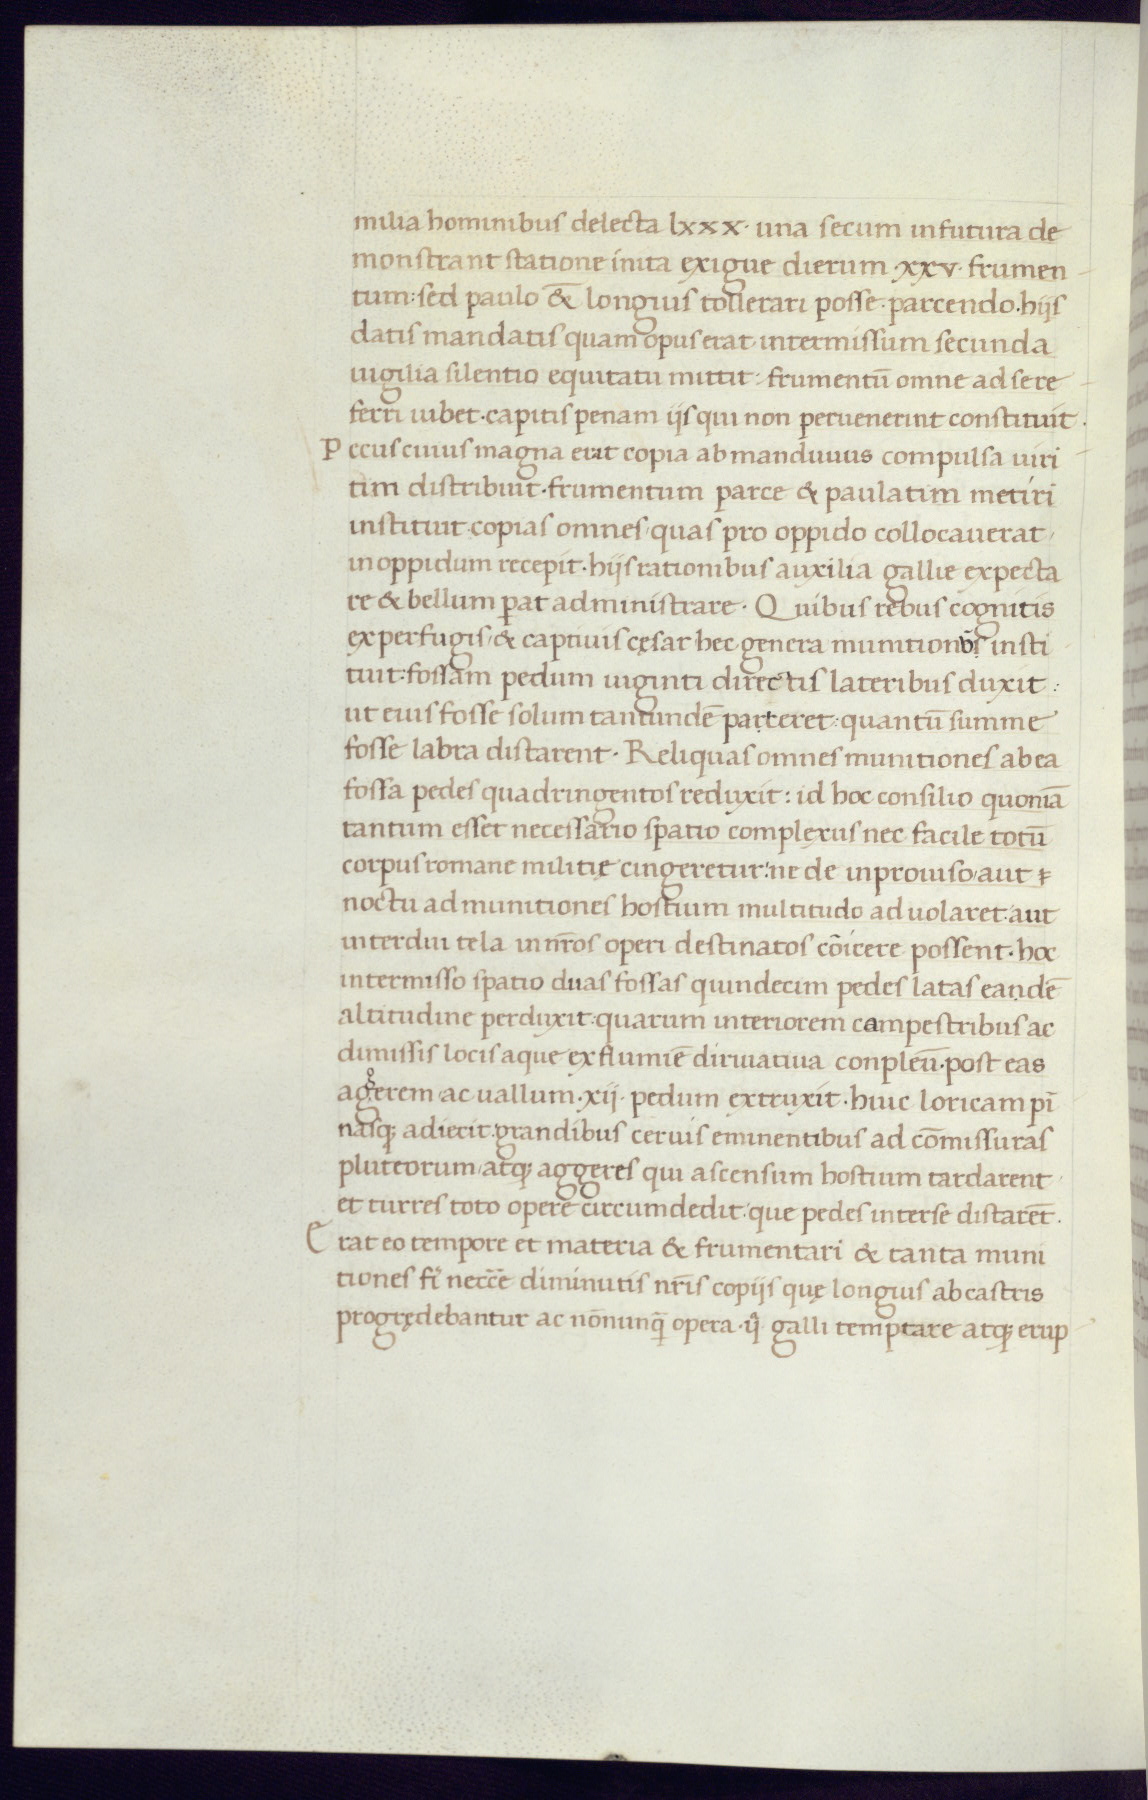 milia hominibus delecta lxxx· una secum in futura de
monstrant statione inita exigue dierum ·xxv· frumen
tum: sed paulo & longius tollerari posse· parcendo· hijs
datis mandatis quam opus erat intermissum secunda
uigilia silentio equitatu mittit· frumentū omne ad se re
ferri iubet· capitis penam ijs qui non peruenerint constituit·
Pecus cuius magna erat copia ab manduuus compulsa uiri
tim distribuit· frumentum parce & paulatim metiri
instituit copias omnes, quas pro oppido collocauerat,
in oppidum recepit· hijs rationibus auxilia gallie expecta
re & bellum parat administrare· Quibus rebus cognitis
ex perfugis, & captiuis cęsar hec genera munitionū insti
tuit: fossam pedum uiginti directis lateribus duxit:
ut eius fosse solum tantundē parteret: quantū summe
fosse labra distarent· Reliquas omnes munitiones ab ea
fossa pedes quadringentos reduxit: id hoc consilio quoniā
tantum esset necessario spatio complexus nec facile totū
corpus romane militie cingeretur: ne de inprouiso, aut
noctu ad munitiones hostium multitudo aduolaret: aut
interdiu tela in nr̄os operi destinatos cōicere possent· hoc
intermisso spatio duas fossas quindecim pedes latas eandē
altitudine perduxit: quarum interiorem campestribus ac
dimissis locis aque ex flumiē diriuatiua conpleū· post eas
agerem ac uallum ·xij· pedum extruxit· huic loricam pī
nasq; adiecit· grandibus ceruis eminentibus ad cōmissuras
pluteorum, atq; aggeres qui ascensum hostium tardarent
et turres toto opere circumdedit: que pedes inter se distarēt·
Erat eo tempore et materia & frumentari & tanta muni
tiones fi necc̄e diminutis nr̄is copijs quę longius ab castris
progrędebantur ac nōnunq̄ opera ·ij· galli temptare atq; erup